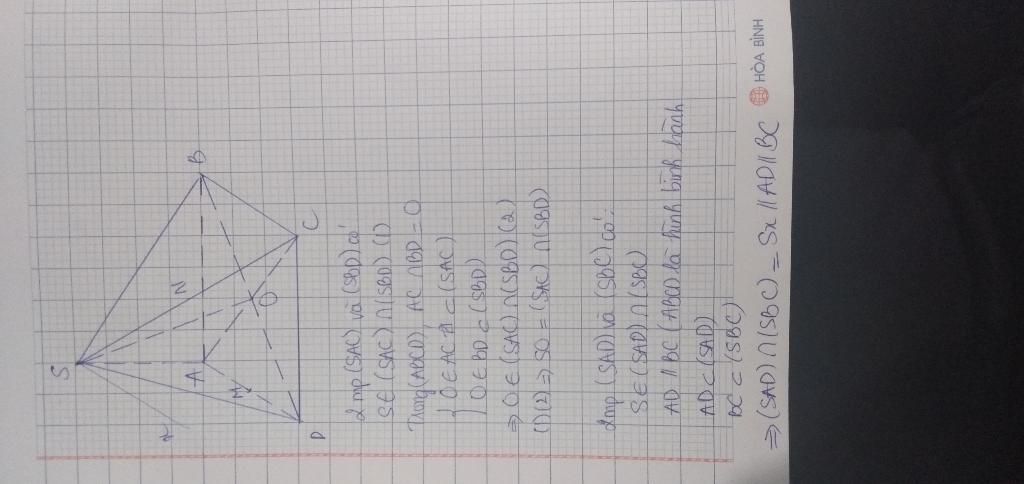 S
B
N
A
O
C
M
x
D
2 mp (SAC) và (SBD) có
S ∈ (SAC) ∩ (SBD) (1)
Trong (ABCD), AC ∩ BD = O
{ O ∈ AC ⊂ (SAC)
O ∈ BD ⊂ (SBD)
⇒ O ∈ (SAC) ∩ (SBD) (2)
(1)(2) ⇒ SO = (SAC) ∩ (SBD)
2mp (SAD) và (SBC) có:
S ∈ (SAD) ∩ (SBC)
AD // BC (ABCD là hình bình hành
AD ⊂ (SAD)
BC ⊂ (SBC)
⇒ (SAD) ∩ (SBC) = Sx // AD // BC
HÒA BÌNH